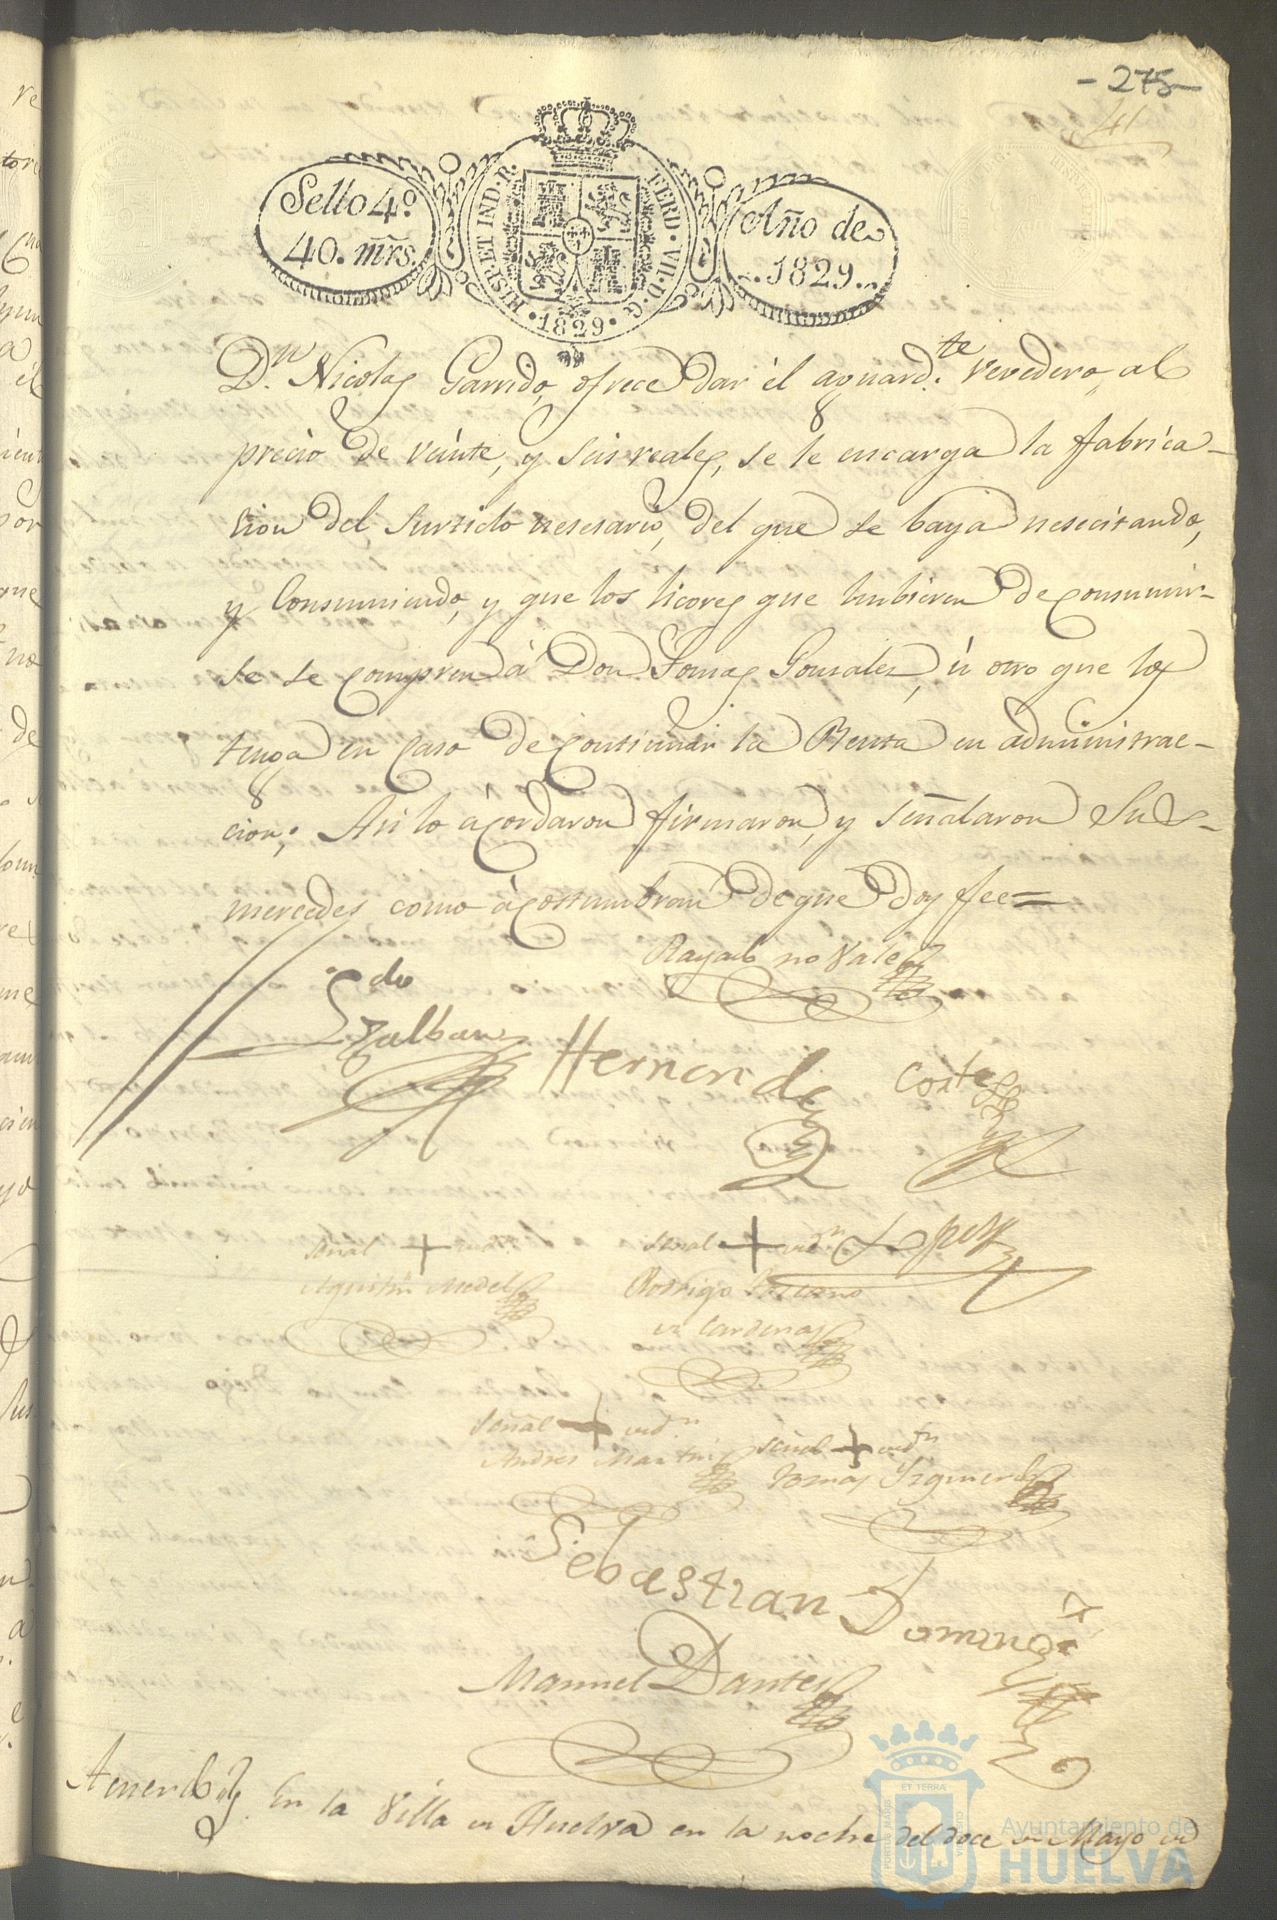 -275-
41
Sello 4º
40. mrs.
HISP. ET IND. R. FERD. VII. D. G.
· 1829 ·
Año de
1829.
Dn. Nicolas Garrido, ofrece dar él aguard.te vevedero, al
precio de veinte, y seis reales, se le encarga la fabrica-
cion del surtido nesesario, del que se baya nesecitando,
y Consumiendo, y que los licores que hubieren de consumir-
se se compren á Don Tomas Gonsalez, ú otro que los
tenga en caso de continuar la Renta en administrac-
cion; Asi lo ácordaron firmaron, y señalaron Sus-
mercedes como ácostumbran de que doy fee=
Rayado no Vale
Ldo
Hernandez Cortes
señal + de
Agustin Medel
señal + de Lopez
Rodrigo
de Cardenas
señal + de
Andres Martin
señal + de
Tomas Izquierdo
Sebastian Domingz
Manuel Dantes
Acuerdo
En la Villa de Huelva en la noche del doce de Mayo de
PORTUS MARIS ET TERRAE CUSTODIA
Ayuntamiento de
HUELVA